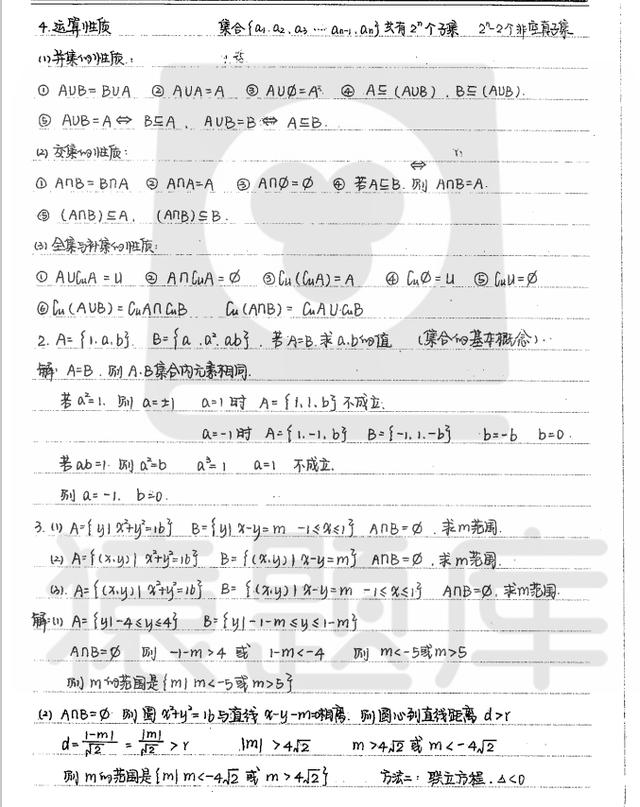 4.运算性质 集合{a₁.a₂.a₃…aₙ₋₁.aₙ}共有2ⁿ个子集 2ⁿ-2个非空真子集
(1)并集的性质:
① A∪B=B∪A ② A∪A=A ③ A∪∅=A ④ A⊆(A∪B).B⊆(A∪B).
⑤ A∪B=A⇔B⊆A. A∪B=B⇔A⊆B.
(2)交集的性质: ⇔
① A∩B=B∩A ② A∩A=A ③ A∩∅=∅ ④ 若A⊆B.则A∩B=A.
⑤ (A∩B)⊆A. (A∩B)⊆B.
(3)全集与补集的性质:
① A∪CᵤA=U ② A∩CᵤA=∅ ③Cᵤ(CᵤA)=A ④ Cᵤ∅=U ⑤CᵤU=∅
⑥Cᵤ(A∪B)=CᵤA∩CᵤB Cᵤ(A∩B)=CᵤA∪CᵤB
2. A={1.a.b}. B={a.a².ab}.若A=B.求a.b的值 (集合的基本概念).
解: A=B.则A.B集合内元素相同.
若a²=1.则a=±1 a=1时 A={1.1.b}不成立.
a=-1时 A={1.-1.b} B={-1.1.-b} b=-b b=0.
若ab=1.则a²=b a³=1 a=1 不成立.
则a=-1. b=0.
3.(1) A={y|x²+y²=16} B={y|x-y=m -1≤x≤1} A∩B=∅.求m范围.
(2) A={(x.y)|x²+y²=16} B={(x.y)|x-y=m} A∩B=∅.求m范围.
(3). A={(x.y)|x²+y²=16} B={(x.y)|x-y=m -1≤x≤1} A∩B=∅.求m范围.
解:(1) A={y|-4≤y≤4} B={y|-1-m≤y≤1-m}
A∩B=∅ 则 -1-m>4 或 1-m<-4 则 m<-5或m>5
则m的范围是{m|m<-5或m>5}
(2) A∩B=∅ 则圆x²+y²=16与直线x-y-m=0相离.则圆心到直线距离 d>r
d=|-m|/√2=|m|/√2>r |m|>4√2 m>4√2 或 m<-4√2
则m的范围是{m|m<-4√2 或 m>4√2} 方法二:联立方程.△<0
猿题库